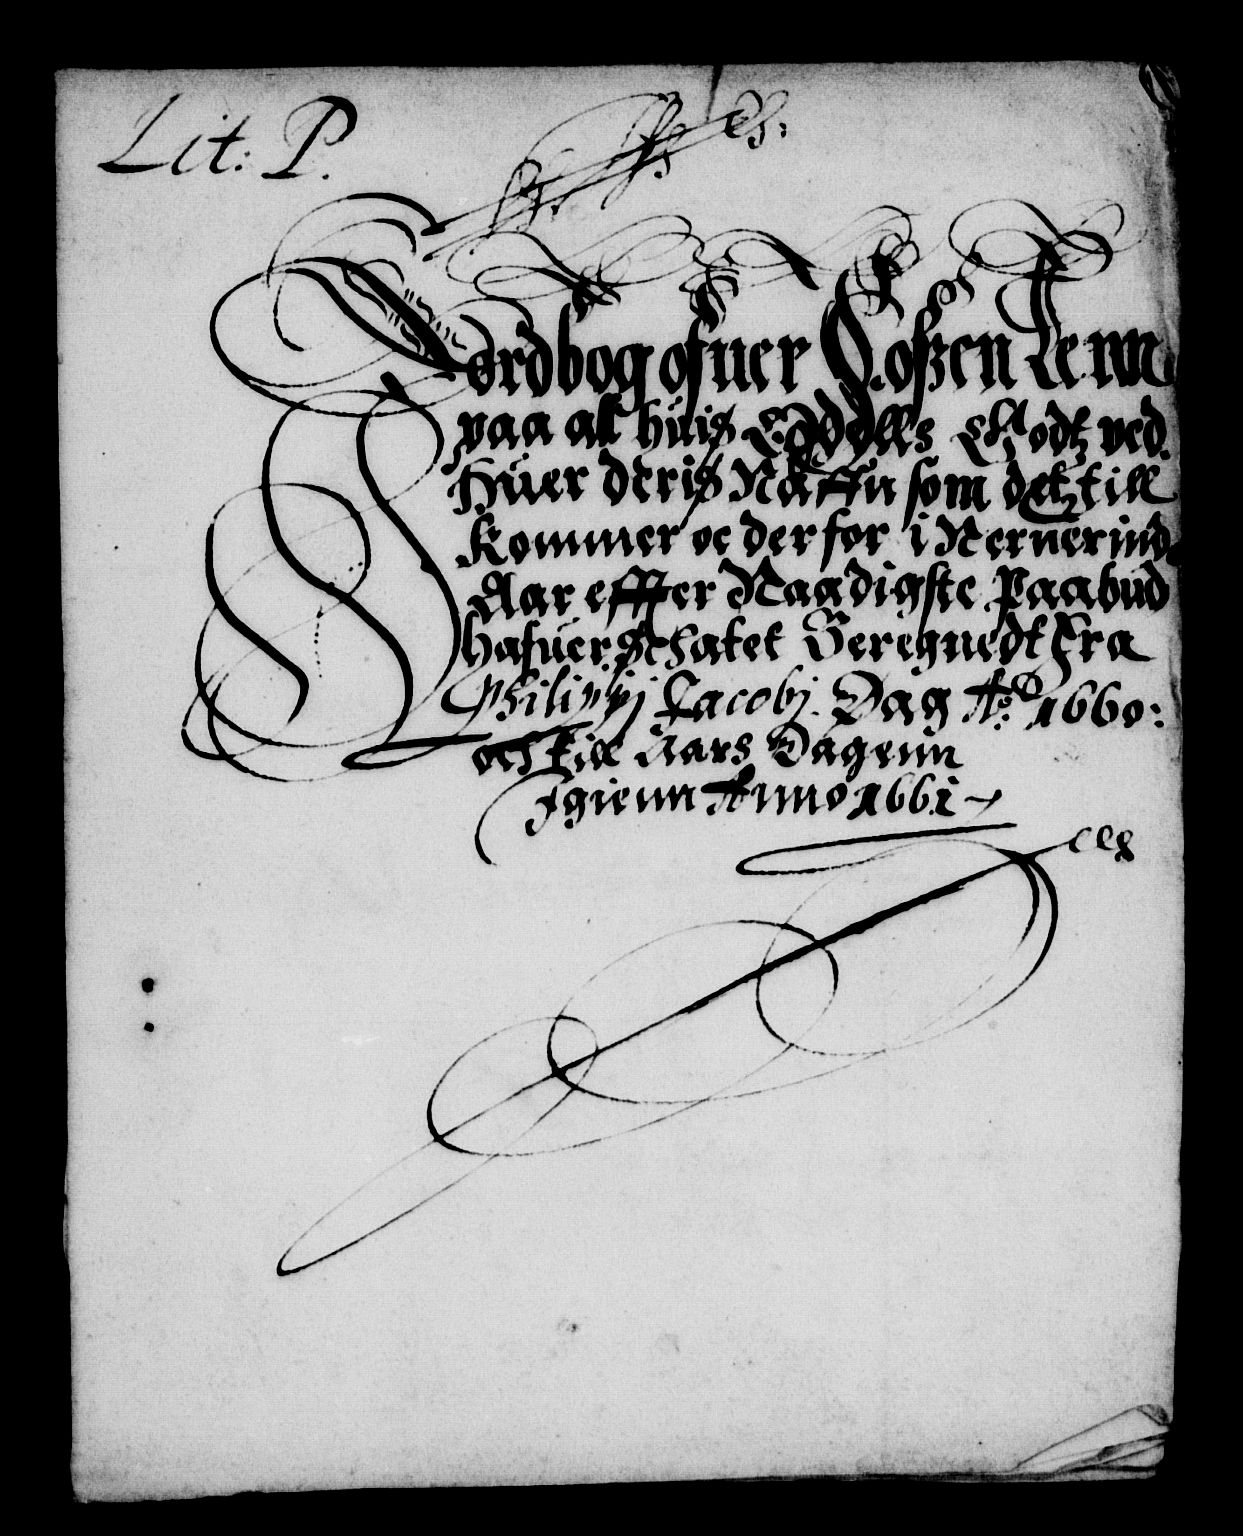 Lit: P.
Jordbog ofuer Løszen Lenn
paa alt huis Eydells Godtz ved
Huer deris Naffn som detz till
kommer oc der for i Nerverind
Aar effter Naadigste Paabud
hafuer schatet Beregnedt Fra
Philippj Jacobj Dag Ao 1660:
och till Aars Dagenn
Igienn Anno 1661